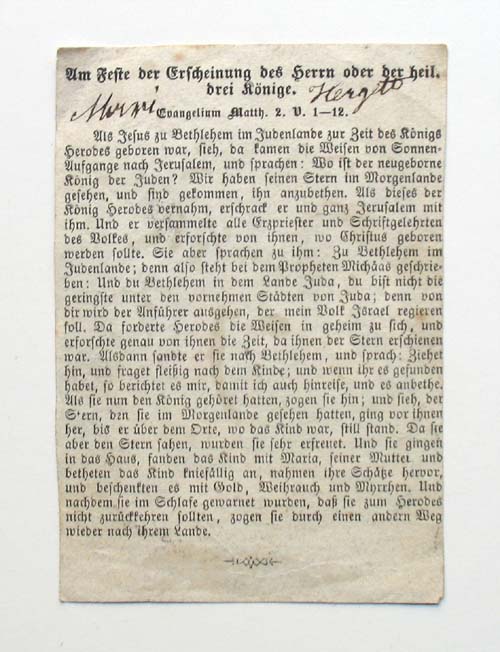 Am Feste der Erscheinung des Herrn oder der heil.
drei Könige.
Evangelium Matth. 2. V. 1—12.
Als Jesus zu Bethlehem im Judenlande zur Zeit des Königs
Herodes geboren war, sieh, da kamen die Weisen von Sonnen-
Aufgange nach Jerusalem, und sprachen: Wo ist der neugeborne
König der Juden? Wir haben seinen Stern im Morgenlande
gesehen, und sind gekommen, ihn anzubethen. Als dieses der
König Herodes vernahm, erschrack er und ganz Jerusalem mit
ihm. Und er versammelte alle Erzpriester und Schriftgelehrten
des Volkes, und erforschte von ihnen, wo Christus geboren
werden sollte. Sie aber sprachen zu ihm: Zu Bethlehem im
Judenlande; denn also steht bei dem Propheten Michäas geschrie-
ben: Und du Bethlehem in dem Lande Juda, du bist nicht die
geringste unter den vornehmen Städten von Juda; denn von
dir wird der Anführer ausgehen, der mein Volk Israel regieren
soll. Da forderte Herodes die Weisen in geheim zu sich, und
erforschte genau von ihnen die Zeit, da ihnen der Stern erschienen
war. Alsdann sandte er sie nach Bethlehem, und sprach: Ziehet
hin, und fraget fleißig nach dem Kinde; und wenn ihr es gefunden
habet, so berichtet es mir, damit ich auch hinreise, und es anbethe.
Als sie nun den König gehöret hatten, zogen sie hin; und sieh, der
Stern, den sie im Morgenlande gesehen hatten, ging vor ihnen
her, bis er über dem Orte, wo das Kind war, still stand. Da sie
aber den Stern sahen, wurden sie sehr erfreuet. Und sie gingen
in das Haus, fanden das Kind mit Maria, seiner Mutter und
betheten das Kind kniefällig an, nahmen ihre Schätze hervor,
und beschenkten es mit Gold, Weihrauch und Myrrhen. Und
nachdem sie im Schlafe gewarnet wurden, daß sie zum Herodes
nicht zurückkehren sollten, zogen sie durch einen andern Weg
wieder nach ihrem Lande.